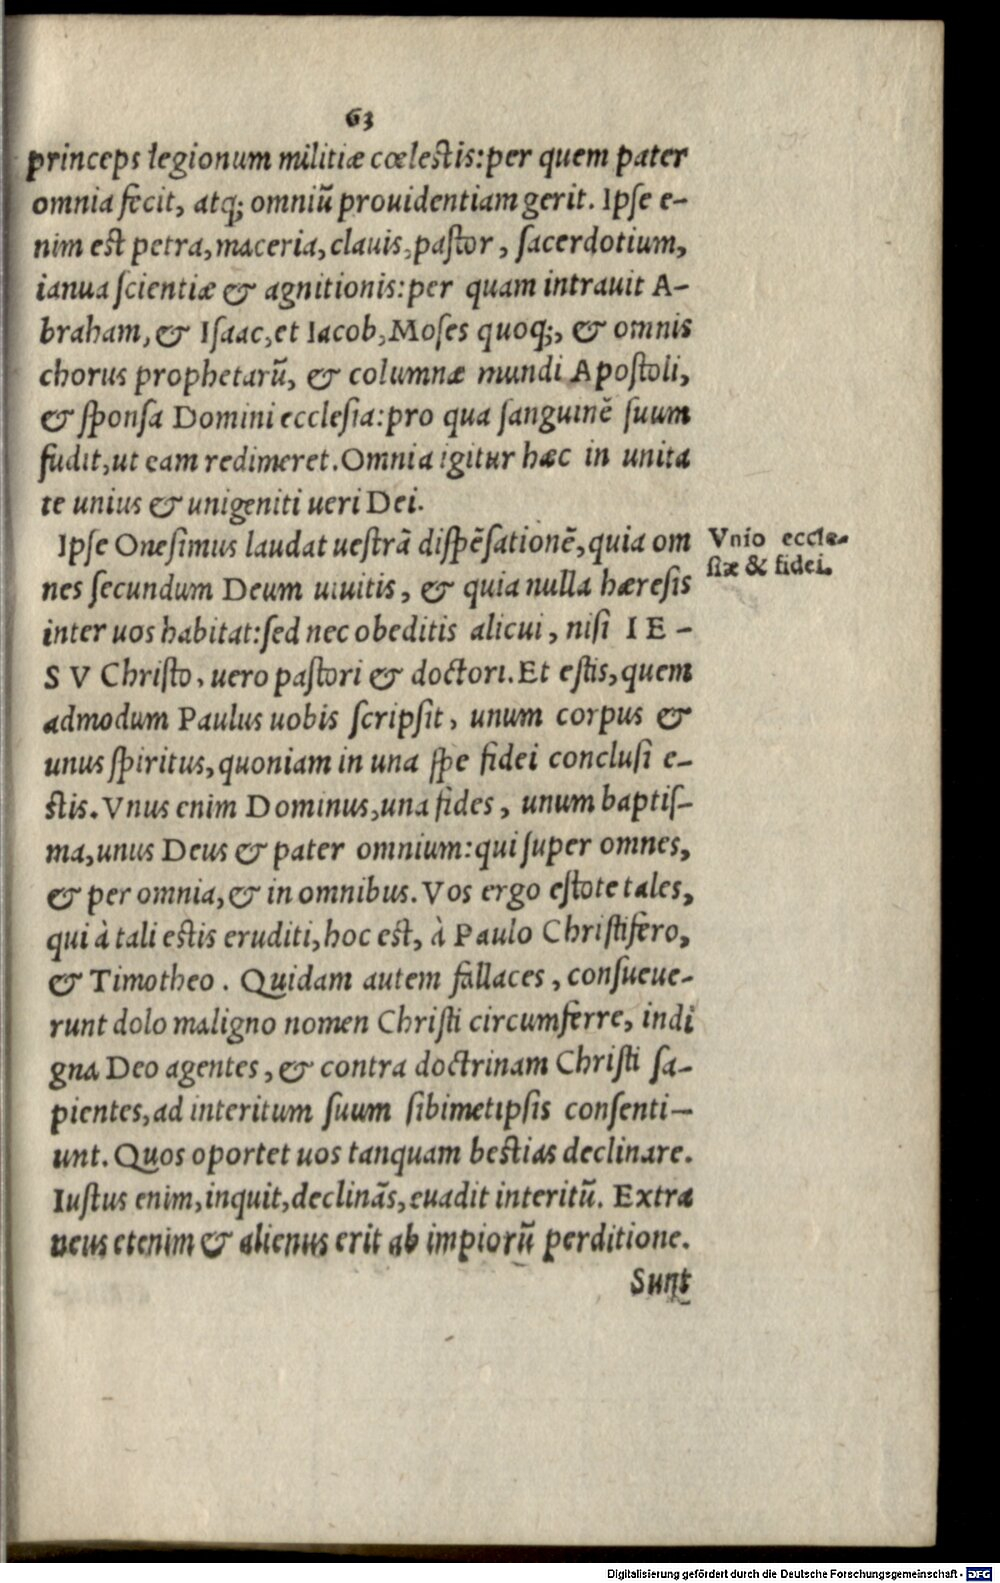 63
princeps legionum militiæ cœlestis:per quem pater
omnia fecit, atq; omniũ prouidentiam gerit. Ipse e-
nim est petra, maceria, clauis, pastor, sacerdotium,
ianua scientiæ & agnitionis:per quam intrauit A-
braham, & Isaac, et Iacob, Moses quoq;, & omnis
chorus prophetarũ, & columnæ mundi Apostoli,
& sponsa Domini ecclesia:pro qua sanguinẽ suum
fudit, ut eam redimeret. Omnia igitur hæc in unita
te unius & unigeniti ueri Dei.
Ipse Onesimus laudat uestrã dispẽsationẽ, quia om
nes secundum Deum uiuitis, & quia nulla hæresis
inter uos habitat:sed nec obeditis alicui, nisi I E -
S V Christo, uero pastori & doctori. Et estis, quem
admodum Paulus uobis scripsit, unum corpus &
unus spiritus, quoniam in una spe fidei conclusi e-
stis. Vnus enim Dominus, una fides, unum baptis-
ma, unus Deus & pater omnium:qui super omnes,
& per omnia, & in omnibus. Vos ergo estote tales,
qui à tali estis eruditi, hoc est, à Paulo Christifero,
& Timotheo. Quidam autem fallaces, consueue-
runt dolo maligno nomen Christi circumferre, indi
gna Deo agentes, & contra doctrinam Christi sa-
pientes, ad interitum suum sibimetipsis consenti-
unt. Quos oportet uos tanquam bestias declinare.
Iustus enim, inquit, declinãs, euadit interitũ. Extra
neus etenim & alienus erit ab impiorũ perditione.
Sunt
Vnio eccle-
siæ & fidei.
Digitalisierung gefördert durch die Deutsche Forschungsgemeinschaft - DFG